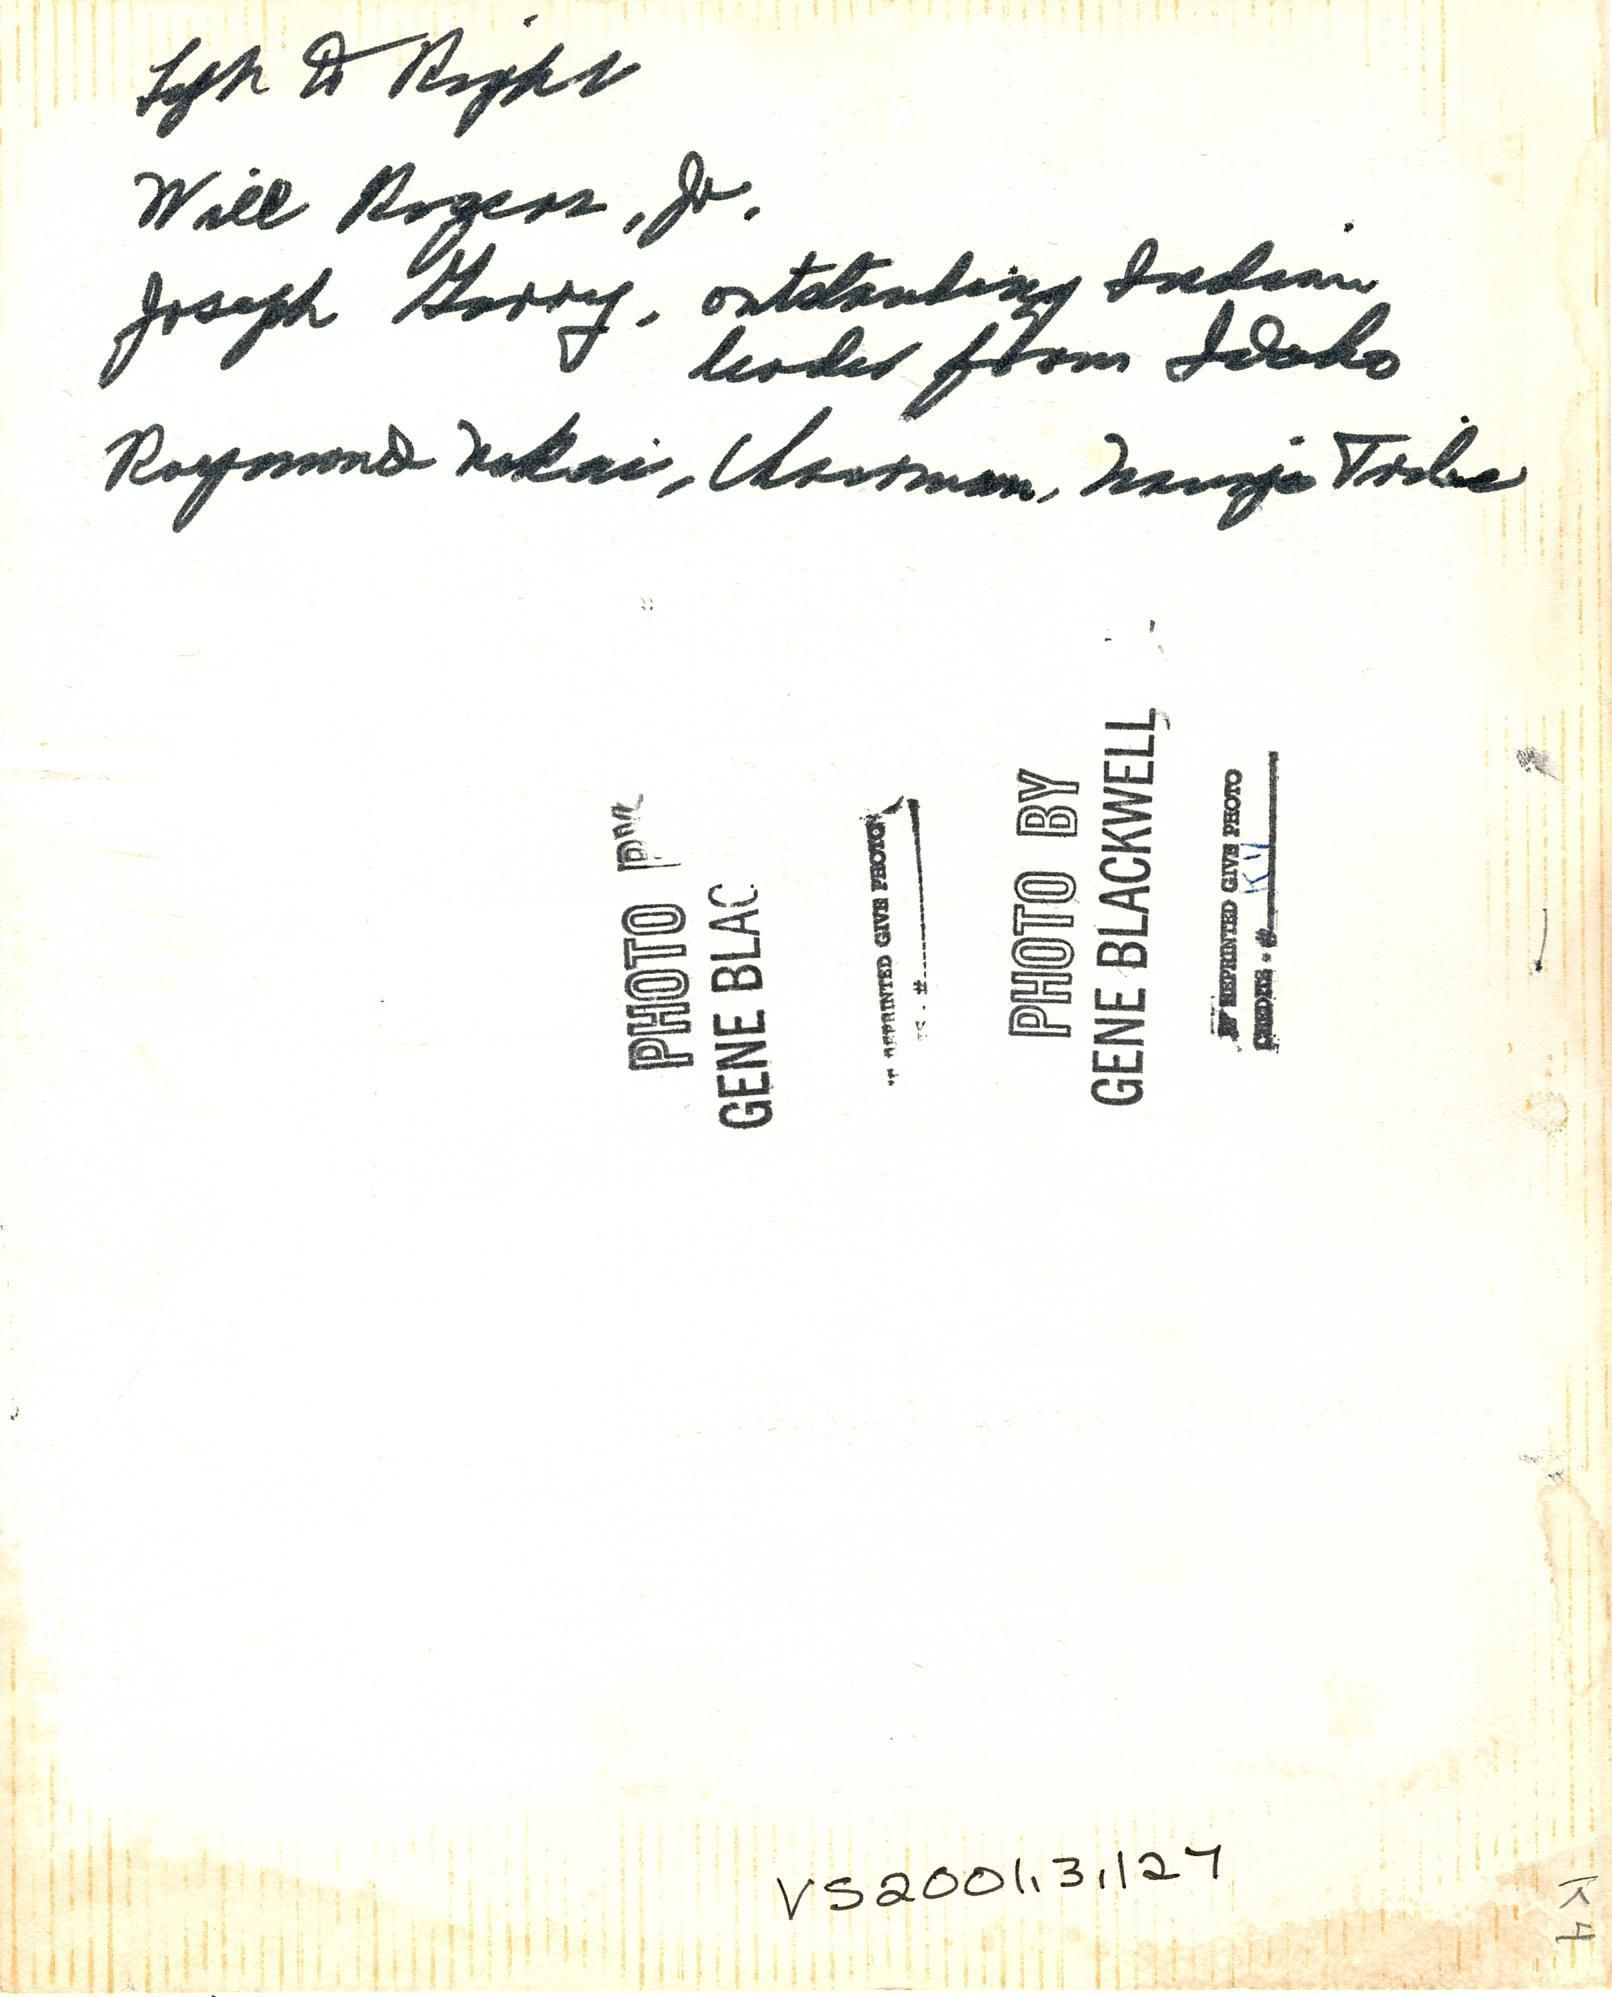 Left to Right
Will Rogers, Jr.
Joseph Garry, outstanding Indian
leader from Idaho
Raymond Nakai, Chairman, Navajo Tribe
PHOTO
GENE BLAC
REPRINTED GIVE PHOTO
#
PHOTO BY
GENE BLACKWELL
IF REPRINTED GIVE PHOTO
CREDITS - # K4
VS2001.3.127
K4